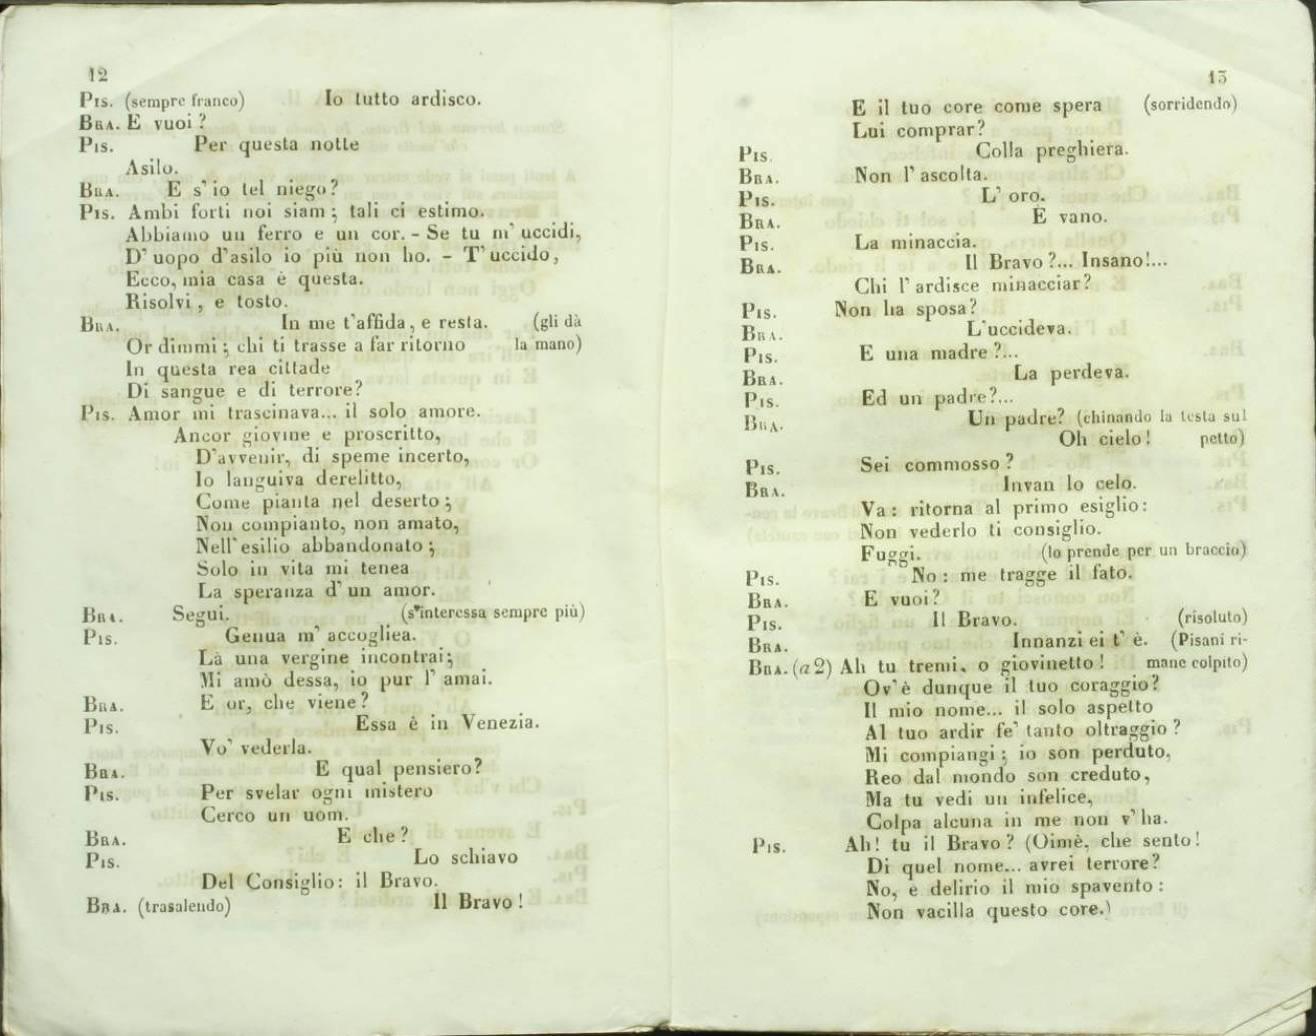 12
Pis. (sempre franco) Io tutto ardisco.
Bra. E vuoi?
Pis. Per questa notte
Asilo.
Bra. E s' io tel niego?
Pis. Ambi forti noi siam; tali ci estimo.
Abbiamo un ferro e un cor. - Se tu m' uccidi,
D' uopo d'asilo io più non ho. - T' uccido,
Ecco, mia casa è questa.
Risolvi, e tosto.
Bra. In me t'affida, e resta. (gli dà
Or dimmi; chi ti trasse a far ritorno la mano)
In questa rea cittade
Di sangue e di terrore?
Pis. Amor mi trascinava... il solo amore.
Ancor giovine e proscritto,
D'avvenir, di speme incerto,
Io languiva derelitto,
Come pianta nel deserto;
Non compianto, non amato,
Nell'esilio abbandonato;
Solo in vita mi tenea
La speranza d' un amor.
Bra. Segui. (s'interessa sempre più)
Pis. Genua m' accogliea.
Là una vergine incontrai;
Mi amò dessa, io pur l' amai.
Bra. E or, che viene?
Pis. Essa è in Venezia.
Vo' vederla.
Bra. E qual pensiero?
Pis. Per svelar ogni mistero
Cerco un uom.
Bra. E che?
Pis. Lo schiavo
Del Consiglio: il Bravo.
Bra. (trasalendo) Il Bravo!
13
E il tuo core come spera (sorridendo)
Lui comprar?
Pis. Colla preghiera.
Bra. Non l' ascolta.
Pis. L' oro.
Bra. È vano.
Pis. La minaccia.
Bra. Il Bravo?... Insano!...
Chi l' ardisce minacciar?
Pis. Non ha sposa?
Bra. L'uccideva.
Pis. E una madre?...
Bra. La perdeva.
Pis. Ed un padre?...
Bra. Un padre? (chinando la testa sul
Oh cielo! petto)
Pis. Sei commosso?
Bra. Invan lo celo.
Va: ritorna al primo esiglio:
Non vederlo ti consiglio.
Fuggi. (lo prende per un braccio)
Pis. No: me tragge il fato.
Bra. E vuoi?
Pis. Il Bravo. (risoluto)
Bra. Innanzi ei t' è. (Pisani ri-
Bra. (a 2) Ah tu tremi, o giovinetto! mane colpito)
Ov' è dunque il tuo coraggio?
Il mio nome... il solo aspetto
Al tuo ardir fe' tanto oltraggio?
Mi compiangi; io son perduto,
Reo dal mondo son creduto,
Ma tu vedi un infelice,
Colpa alcuna in me non v' ha.
Pis. Ah! tu il Bravo? (Oimè, che sento!
Di quel nome... avrei terrore?
No, è delirio il mio spavento:
Non vacilla questo core.)